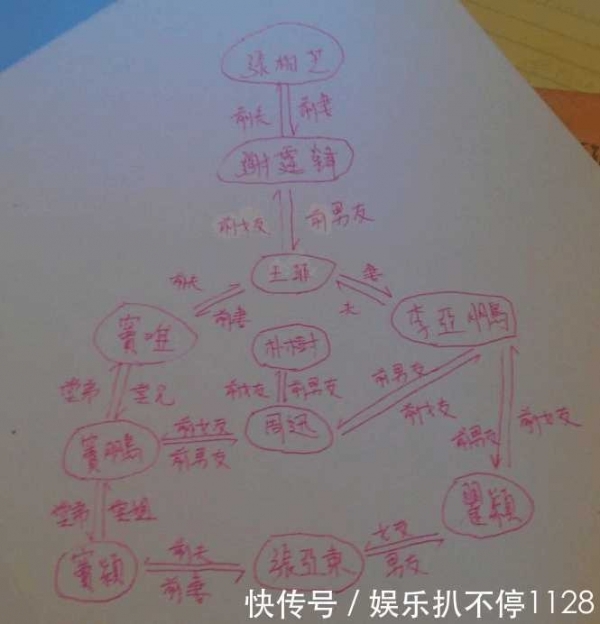 張柏芝
前夫 前妻
謝霆鋒
前女友 前男友
王菲
前夫 妻
前妻 夫
竇唯 李亞鵬
朴樹
堂弟 堂兄 前女友 前男友 前男友
前女友 前女友
竇鵬 前女友 周迅 前男友
前男友
堂弟 堂姐 瞿穎
前夫 女友
竇穎 張亞東
前妻 男友
快传号/娱乐扒不停1128